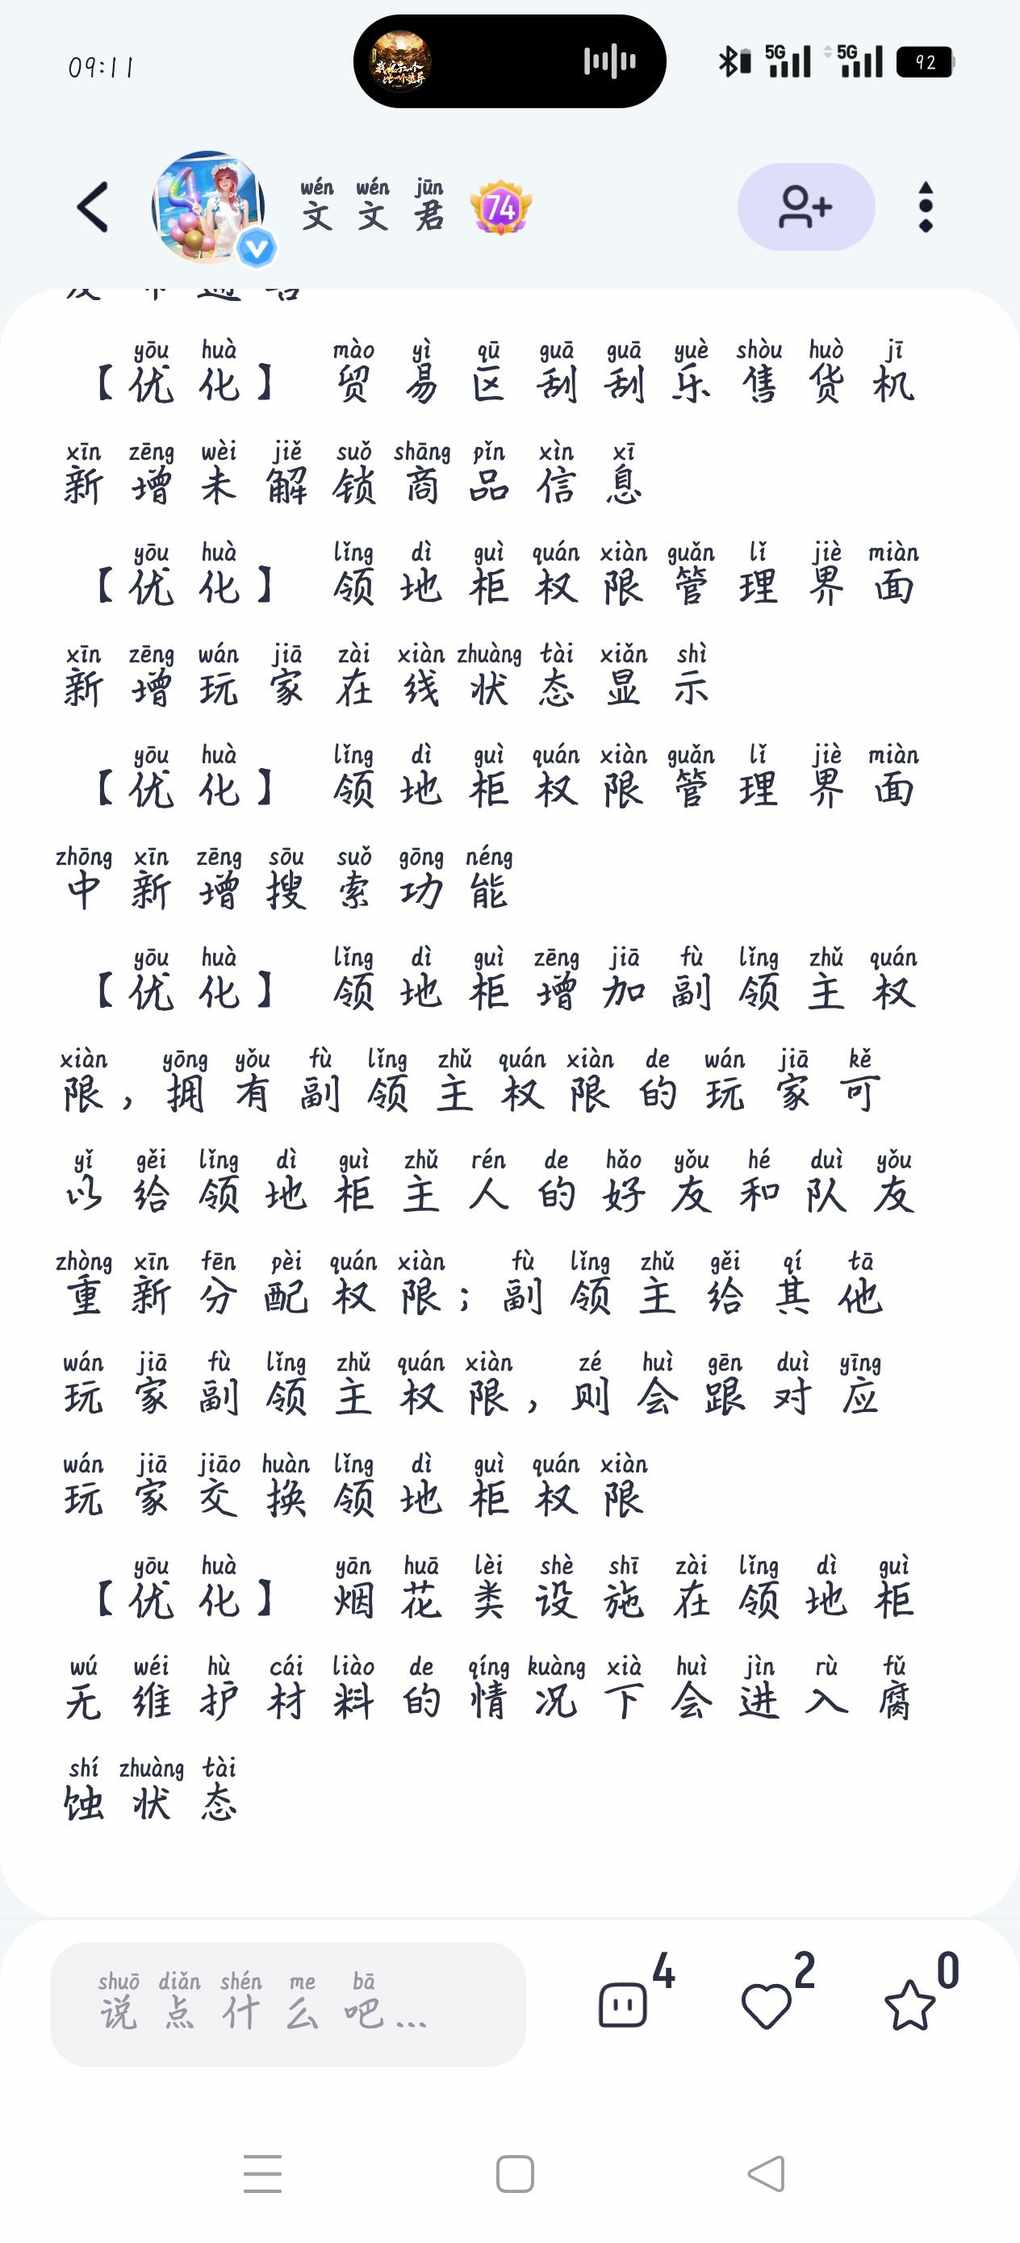 09:11
5G 5G 92
wén wén jūn
文文君 74
yōu huà mào yì qū guā guā yuè shòu huò jī
【优化】 贸易区刮刮乐售货机
xīn zēng wèi jiě suǒ shāng pǐn xìn xī
新增未解锁商品信息
yōu huà lǐng dì guì quán xiàn guǎn lǐ jiè miàn
【优化】 领地柜权限管理界面
xīn zēng wán jiā zài xiàn zhuàng tài xiǎn shì
新增玩家在线状态显示
yōu huà lǐng dì guì quán xiàn guǎn lǐ jiè miàn
【优化】 领地柜权限管理界面
zhōng xīn zēng sōu suǒ gōng néng
中新增搜索功能
yōu huà lǐng dì guì zēng jiā fù lǐng zhǔ quán
【优化】 领地柜增加副领主权
xiàn yōng yǒu fù lǐng zhǔ quán xiàn de wán jiā kě
限，拥有副领主权限的玩家可
yǐ gěi lǐng dì guì zhǔ rén de hǎo yǒu hé duì yǒu
以给领地柜主人的好友和队友
zhòng xīn fēn pèi quán xiàn fù lǐng zhǔ gěi qí tā
重新分配权限；副领主给其他
wán jiā fù lǐng zhǔ quán xiàn zé huì gēn duì yīng
玩家副领主权限，则会跟对应
wán jiā jiāo huàn lǐng dì guì quán xiàn
玩家交换领地柜权限
yōu huà yān huā lèi shè shī zài lǐng dì guì
【优化】 烟花类设施在领地柜
wú wéi hù cái liào de qíng kuàng xià huì jìn rù fǔ
无维护材料的情况下会进入腐
shí zhuàng tài
蚀状态
shuō diǎn shén me bā
说点什么吧...
4 2 0